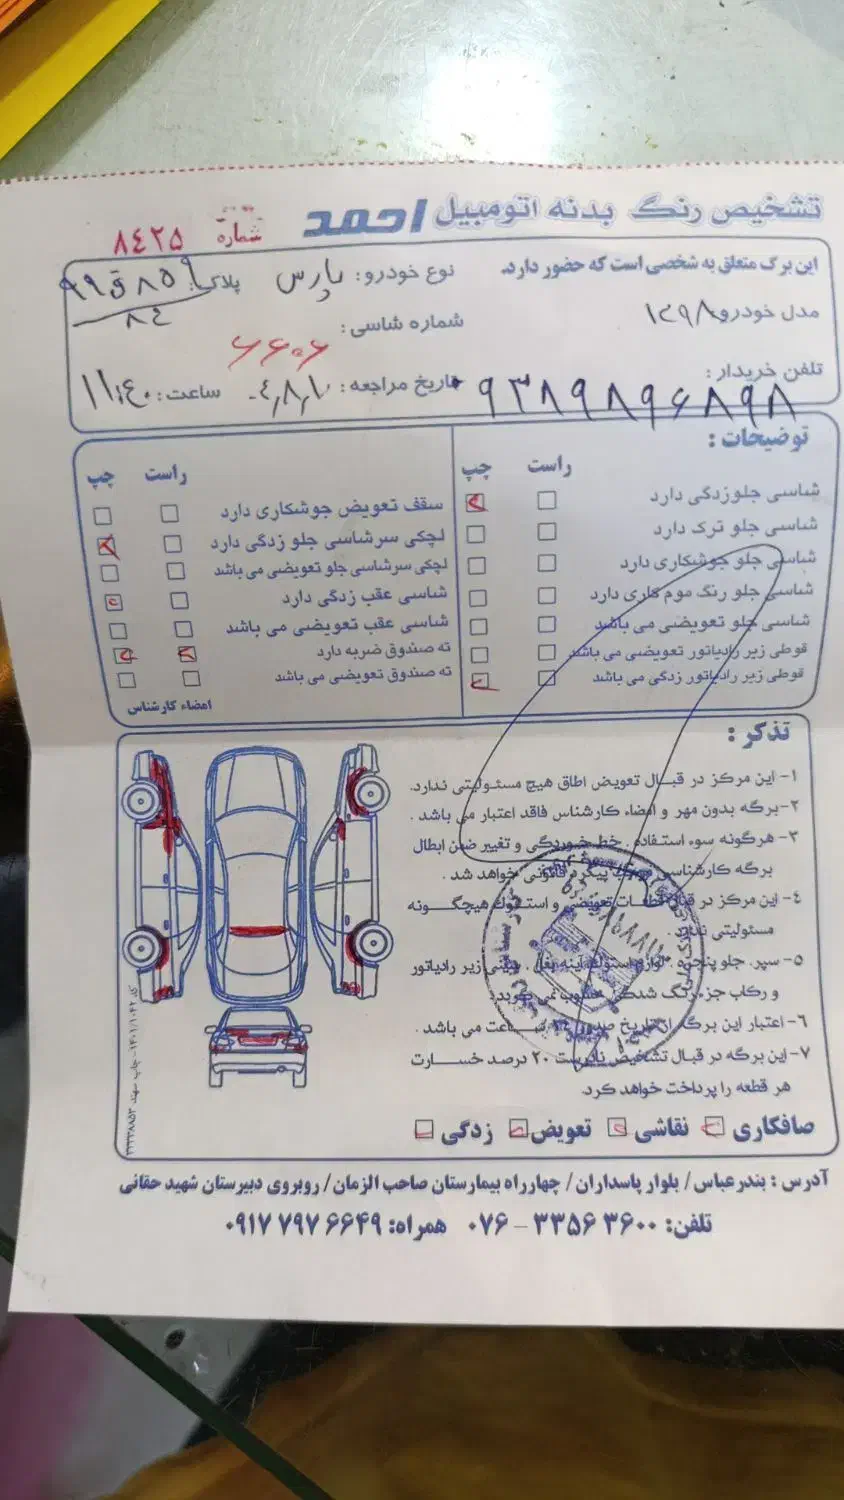 تشخیص رنگ بدنه اتومبیل احمد
شماره ۸۴۲۵
این برگ متعلق به شخصی است که حضور دارد.
نوع خودرو: پارس
پلاک: ۸۵۹ق۹۹
۸۴
مدل خودرو ۱۳۹۸
شماره شاسی: ۶۶۰۶
تلفن خریدار: ۰۹۳۸۹۸۹۶۸۹۸
تاریخ مراجعه:
ساعت: ۱۱:۴۰
توضیحات:
راست چپ
شاسی جلوزدگی دارد
شاسی جلو ترک دارد
شاسی جلو جوشکاری دارد
شاسی جلو رنگ موم کاری دارد
شاسی جلو تعویضی می باشد
قوطی زیر رادیاتور تعویضی می باشد
قوطی زیر رادیاتور زدگی می باشد
راست چپ
سقف تعویض جوشکاری دارد
لچکی سرشاسی جلو زدگی دارد
لچکی سرشاسی جلو تعویضی می باشد
شاسی عقب زدگی دارد
شاسی عقب تعویضی می باشد
ته صندوق ضربه دارد
ته صندوق تعویضی می باشد
امضاء کارشناس
تذکر:
۱- این مرکز در قبال تعویض اطاق هیچ مسئولیتی ندارد.
۲- برگه بدون مهر و امضاء کارشناس فاقد اعتبار می باشد.
۳- هرگونه سوء استفاده، خط خوردگی و تغییر ضمن ابطال
برگه کارشناسی موجب پیگرد قانونی خواهد شد.
۴- این مرکز در قبال قطعات تعویضی و استوک هیچگونه
مسئولیتی ندارد.
۵- سپر، جلو پنجره، لوازم استوک، آینه بغل، سینی زیر رادیاتور
و رکاب جزء رنگ شدگی محسوب نمی گردد.
۶- اعتبار این برگه از تاریخ صدور ۲۴ ساعت می باشد.
۷- این برگه در قبال تشخیص نادرست ۲۰ درصد خسارت
هر قطعه را پرداخت خواهد کرد.
صافکاری نقاشی تعویض زدگی
آدرس: بندرعباس/ بلوار پاسداران/ چهارراه بیمارستان صاحب الزمان/ روبروی دبیرستان شهید حقانی
تلفن: ۳۶۰۰ ۳۳۵۶ - ۰۷۶ همراه: ۶۶۴۹ ۷۹۷ ۰۹۱۷